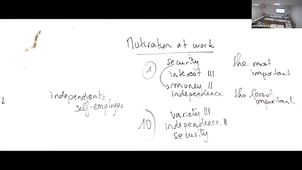 Motivation at work
① security
interest III
money II
independence
the most
important
the least
important
independent =
self-employed
⑩ variety III
independence II
security